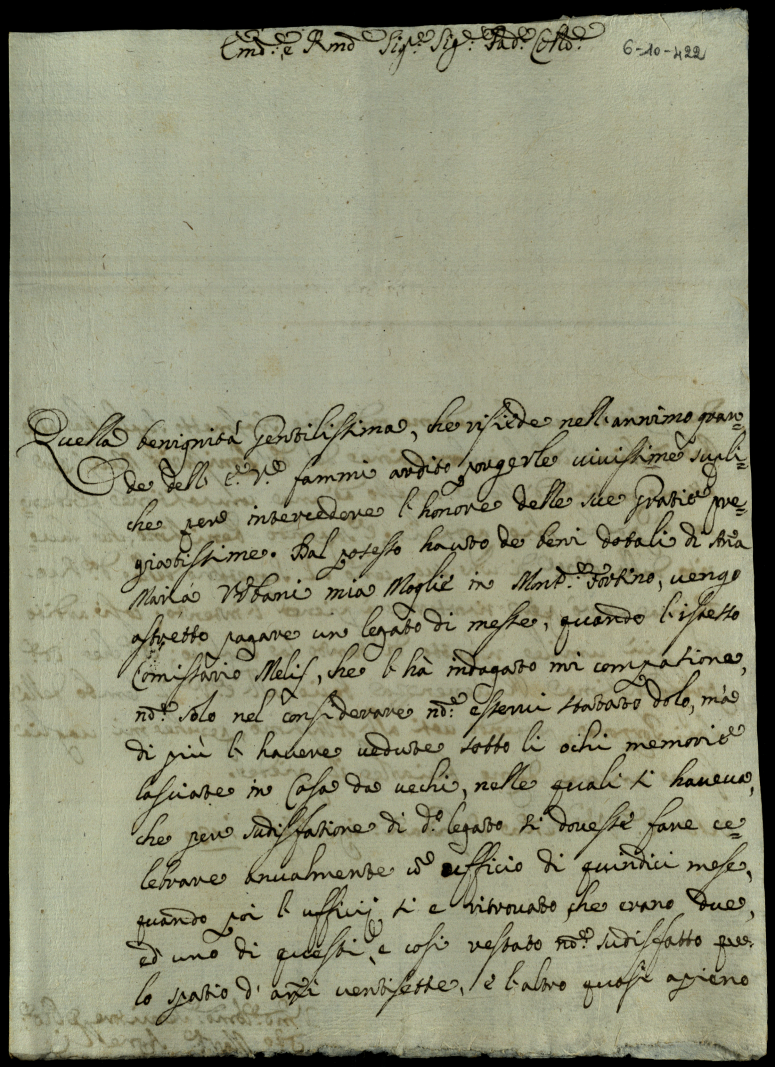 Em.o e Rmo Sig.re Sig.r Pad.n Col.mo
6-10-422
Quella benignitá gentilissima, che risiede nell'annimo gran-
de dell' E.a V.a fammi ardito porgerle vivissime supli-
che per intercedere l'honore delle sue gratie pre-
giatissime. Dal possesso hauto de beni dotali di Ana
Maria Urbani mia Moglie in Mont.e Fortino, vengo
astretto pagare un legato di messe, quando l'istesso
Comissario Melis, che l'hà indagato mi compatione,
no.n solo nel considerare no.n esservi statato dolo, mà
di più l'havere vedute sotto li ochi memorie
lasciate in Casa da vechi, nelle quali si haveva,
che per sudisfatione di d.o legato si dovesse fare ce-
lebrare anualmente un ufficio di quindici messe,
quando poi l'ufficij si e ritrovato che erano due,
ed uno di questi, e cosi restato no.n sudisfatto per
lo spatio d'anni ventisette, e l'altro quasi apieno